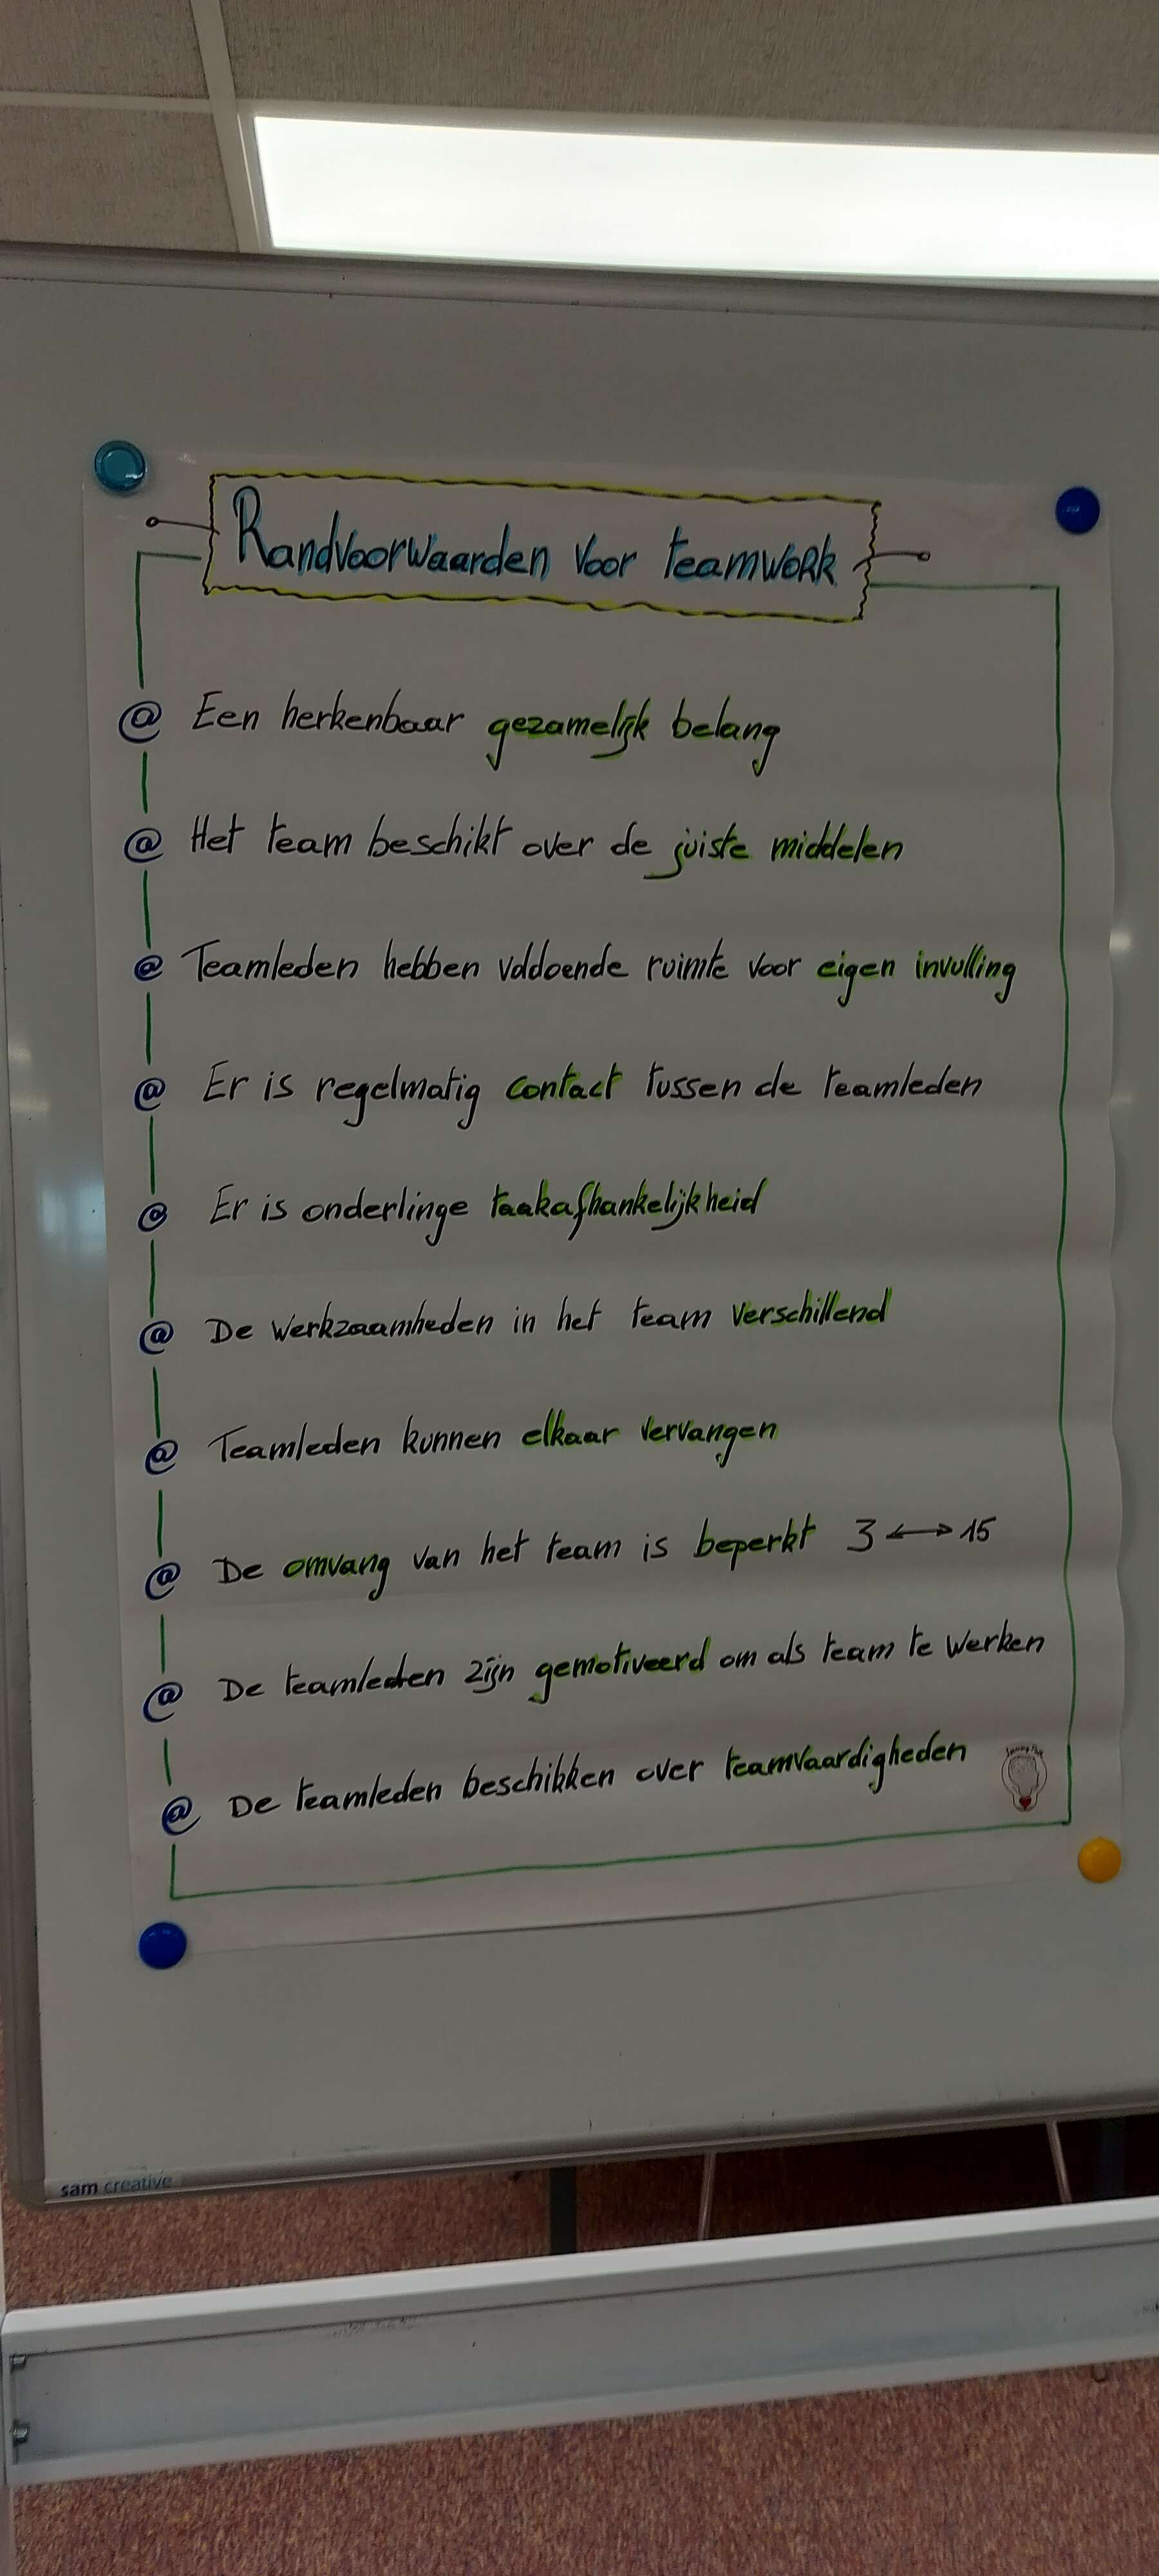 Randvoorwaarden voor teamwork
@ Een herkenbaar gezamelijk belang
@ Het team beschikt over de juiste middelen
@ Teamleden hebben voldoende ruimte voor eigen invulling
@ Er is regelmatig contact tussen de teamleden
@ Er is onderlinge taakafhankelijkheid
@ De werkzaamheden in het team verschillend
@ Teamleden kunnen elkaar vervangen
@ De omvang van het team is beperkt 3 ↔ 15
@ De teamleden zijn gemotiveerd om als team te werken
@ De teamleden beschikken over teamvaardigheden
sam creative